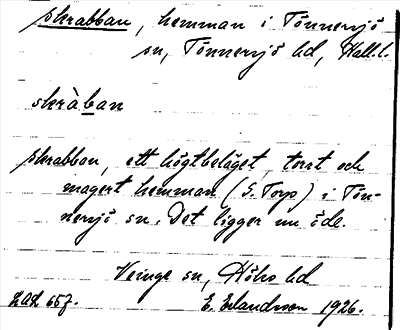 Skrabban, hemman i Tönnersjö
sn, Tönnersjö hd, Hall. l.
skràban
Skrabban, ett högtbeläget, torrt och
magert hemman (S. Torp) i Tön-
nersjö sn. Det ligger nu öde.
Veinge sn, Höks hd
LAL 657. E. Erlandsson 1926.